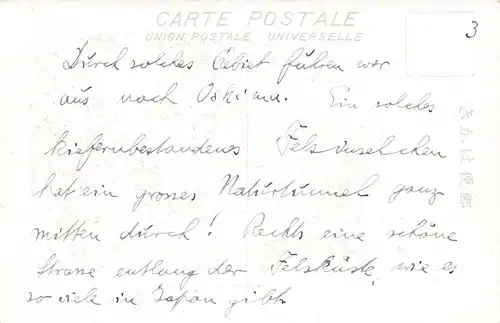 CARTE POSTALE
UNION POSTALE UNIVERSELLE
3
Durch solches Gebiet fuhren wir
aus nach Oshima. Ein solches
kiefernbestandenes Felsinselchen
hat ein grosses Naturtunnel ganz
mitten durch! Rechts eine schöne
Strasse entlang der Felsküste, wie es
so viele in Japan gibt.
きかは便郵